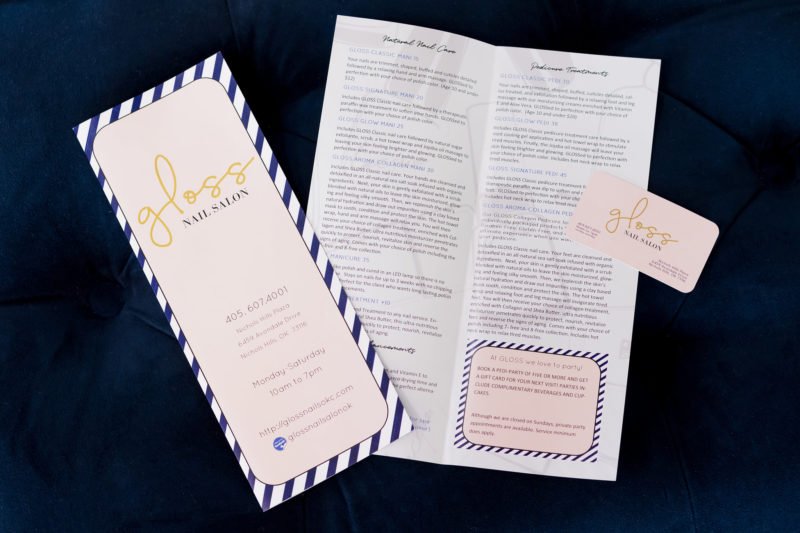 gloss
NAIL SALON
405.607.4001
Nichols Hills Plaza
6459 Avondale Drive
Nichols Hills, OK. 73116
Monday-Saturday
10am to 7pm
http://glossnailsokc.com
glossnailsalonok
Natural Nail Care
GLOSS CLASSIC MANI 15
Your nails are trimmed, shaped, buffed and cuticles detailed
followed by a relaxing hand and arm massage. GLOSSed to
perfection with your choice of polish color. (Age 10 and under
$12)
GLOSS SIGNATURE MANI 20
Includes GLOSS Classic nail care followed by a therapeutic
paraffin wax treatment to soften your hands. GLOSSed to
perfection with your choice of polish color.
GLOSS GLOW MANI 25
Includes GLOSS Classic nail care followed by natural sugar
exfoliates, scrub, hot towel wrap and Jojoba oil massage
leaving your skin feeling brighter and glowing. GLOSSed to
perfection with your choice of polish color.
GLOSS AROMA-COLLAGEN MANI 30
Includes GLOSS Classic nail care. Your hands are cleansed and
detoxified in an all-natural sea salt soak infused with organic
ingredients. Next, your skin is gently exfoliated with a scrub
blended with natural oils to leave the skin moisturized, glow-
ing and feeling silky smooth. Then, we replenish the skin's
natural hydration and draw out impurities using a clay based
mask to sooth, condition and protect the skin. The hot towel
wrap, hand and arm massage will relax you. You will then
receive your choice of collagen treatment, enriched with Col-
lagen and Shea Butter, ultra nutritious moisturizer penetrates
quickly to protect, nourish, revitalize skin and reverse the
signs of aging. Comes with your choice of polish including the
free and 8 free collection.
MANICURE 35
polish and cured in an LED lamp so there is no
Stays on nails for up to 3 weeks with no chipping
Perfect for the client who wants long lasting polish
TREATMENT +10
Treatment to any nail service.
and Shea Butter, this ultra-nutritious
quickly to protect, nourish, revitalize
and Vitamin E to
drying time and
Pedicure Treatments
GLOSS CLASSIC PEDI
Your nails are trimmed, shaped, buffed, and cuticles detailed, cal-
lus treated, and exfoliation followed by a relaxing foot and leg
massage with our moisturizing creams enriched with Vitamin
E and Aloe Vera. GLOSSed to perfection with your choice of
polish color. (Age 10 and under $20)
GLOSS GLOW PEDI
Includes GLOSS Classic pedicure treatment followed by a
and cooling gel application and hot towel wrap to stimulate
tired muscles. Finally, the Jojoba oil massage will leave your
skin feeling brighter and glowing. GLOSSed to perfection with
your choice of polish color. Includes hot neck wrap to relax
tired muscles.
GLOSS SIGNATURE PEDI 45
GLOSS AROMA-COLLAGEN PEDI
Includes GLOSS Classic nail care. Your Feet are cleansed and
detoxified in an all-natural sea salt soak infused with organic
ingredients. Next, your skin is gently exfoliated with a scrub
blended with natural oils to leave the skin moisturized, glow-
ing and feeling silky smooth. Then, we replenish the skin's
natural hydration and draw out impurities using a clay based
mask to sooth, condition and protect the skin. The hot towel
wrap and relaxing foot and leg massage will invigorate tired
feet. You will then receive your choice of collagen treatment,
enriched with Collagen and Shea Butter, ultra nutritious
moisturizer penetrates quickly to protect, nourish, revitalize
feet and reverse the signs of aging. Comes with your choice of
polish including 7- free and 8-free collection. Includes hot
neck wrap to relax tired muscles.
At GLOSS we love to party!
BOOK A PEDI-PARTY OF FIVE OR MORE AND GET
A GIFT CARD FOR YOUR NEXT VISIT! PARTIES IN-
CLUDE COMPLIMENTARY BEVERAGES AND CUP-
CAKES.
Although we are closed on Sundays, private party
appointments are available. Service minimum
does apply.
gloss
NAIL SALON